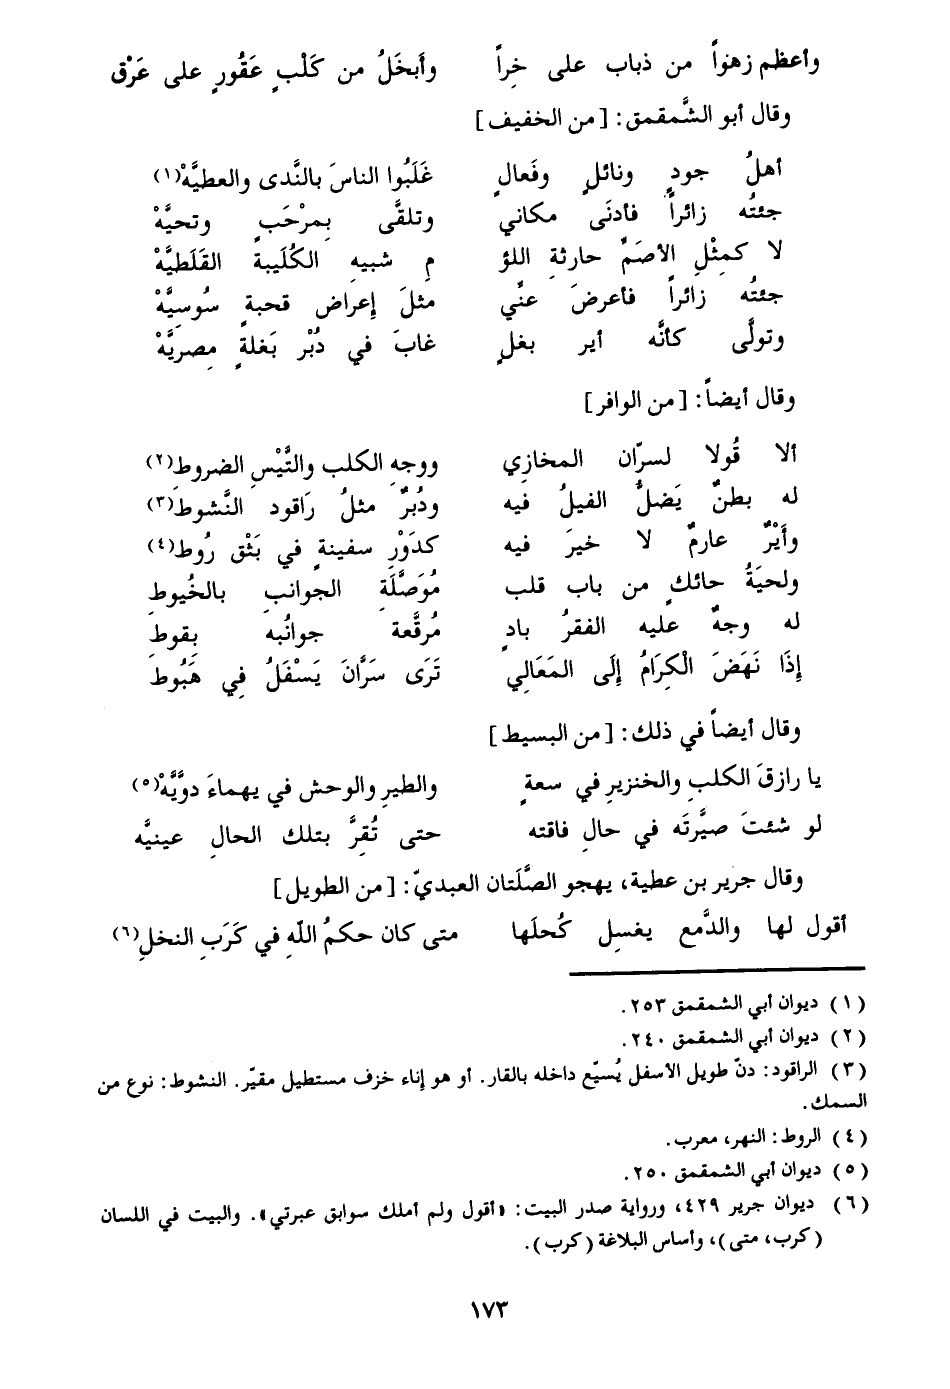 وأعظم زهنواً من ذباب على خِراً وأبخَلُ من كَلْبٍ عَقُورٍ على عَرْق
وقال أبو الشَّمقمق: [من الخفيف]
أهلُ جودٍ ونائلٍ وفَعالٍ غَلَبُوا الناسَ بالنَّدى والعطيَّهْ(١)
جئتُه زائراً فأدنَى مكاني وتلقَّى بِمرْحَبٍ وتحيَّهْ
لا كمِثْلِ الأصَمِّ حارثةِ اللؤ مِ شبيهِ الكُلَيبة القَلَطيَّهْ
جئتُه زائراً فأعرضَ عنّي مثلَ إعراض قحبةٍ سُوسِيَّهْ
وتولَّى كأنَّه أير بغلٍ غابَ في دُبْر بَغلةٍ مِصريَّهْ
وقال أيضاً: [من الوافر]
ألا قُولا لسرّان المخازِي ووجهِ الكلب والتَّيْسِ الضروطِ(٢)
له بطنٌ يَضلُّ الفيلُ فيه ودُبرٌ مثلُ رَاقود النَّشوطِ(٣)
وأَيْرٌ عارمٌ لا خيرَ فيه كدَوْرِ سفينةٍ في بَثْق رُوطِ(٤)
ولحيَةُ حائكٍ من باب قلب مُوَصَّلَةِ الجوانبِ بالخُيوطِ
له وجهٌ عليه الفقرُ بادٍ مُرقَّعة جوانُبه بقوطِ
إِذَا نَهَضَ الْكِرَامُ إِلَى المَعَالِي تَرَى سَرَّانَ يَسْفَلُ فِي هَبُوطَ
وقال أيضاً في ذلك: [من البسيط]
يا رازقَ الكلبِ والخنزيرِ في سعةٍ والطيرِ والوحش في يهماءَ دوِّيَّهْ(٥)
لو شئتَ صيَّرتَه في حالِ فاقته حتى تُقِرَّ بتلك الحالِ عينيَّه
وقال جرير بن عطية، يهجو الصَّلَتان العبديّ: [من الطويل]
أقول لها والدَّمع يغسِل كُحلَها متى كان حكمُ اللّهِ في كَرَبِ النخلِ(٦)
(١) ديوان أبي الشمقمق ٢٥٣.
(٢) ديوان أبي الشمقمق ٢٤٠.
(٣) الراقود: دنّ طويل الأسفل يُسيّع داخله بالقار. أو هو إناء خزف مستطيل مقيّر. النشوط: نوع من
السمك.
(٤) الروط: النهر، معرب.
(٥) ديوان أبي الشمقمق ٢٥٠.
(٦) ديوان جرير ٤٢٩، ورواية صدر البيت: «أقول ولم أملك سوابق عبرتي». والبيت في اللسان
(كرب، متى)، وأساس البلاغة (كرب).
١٧٣